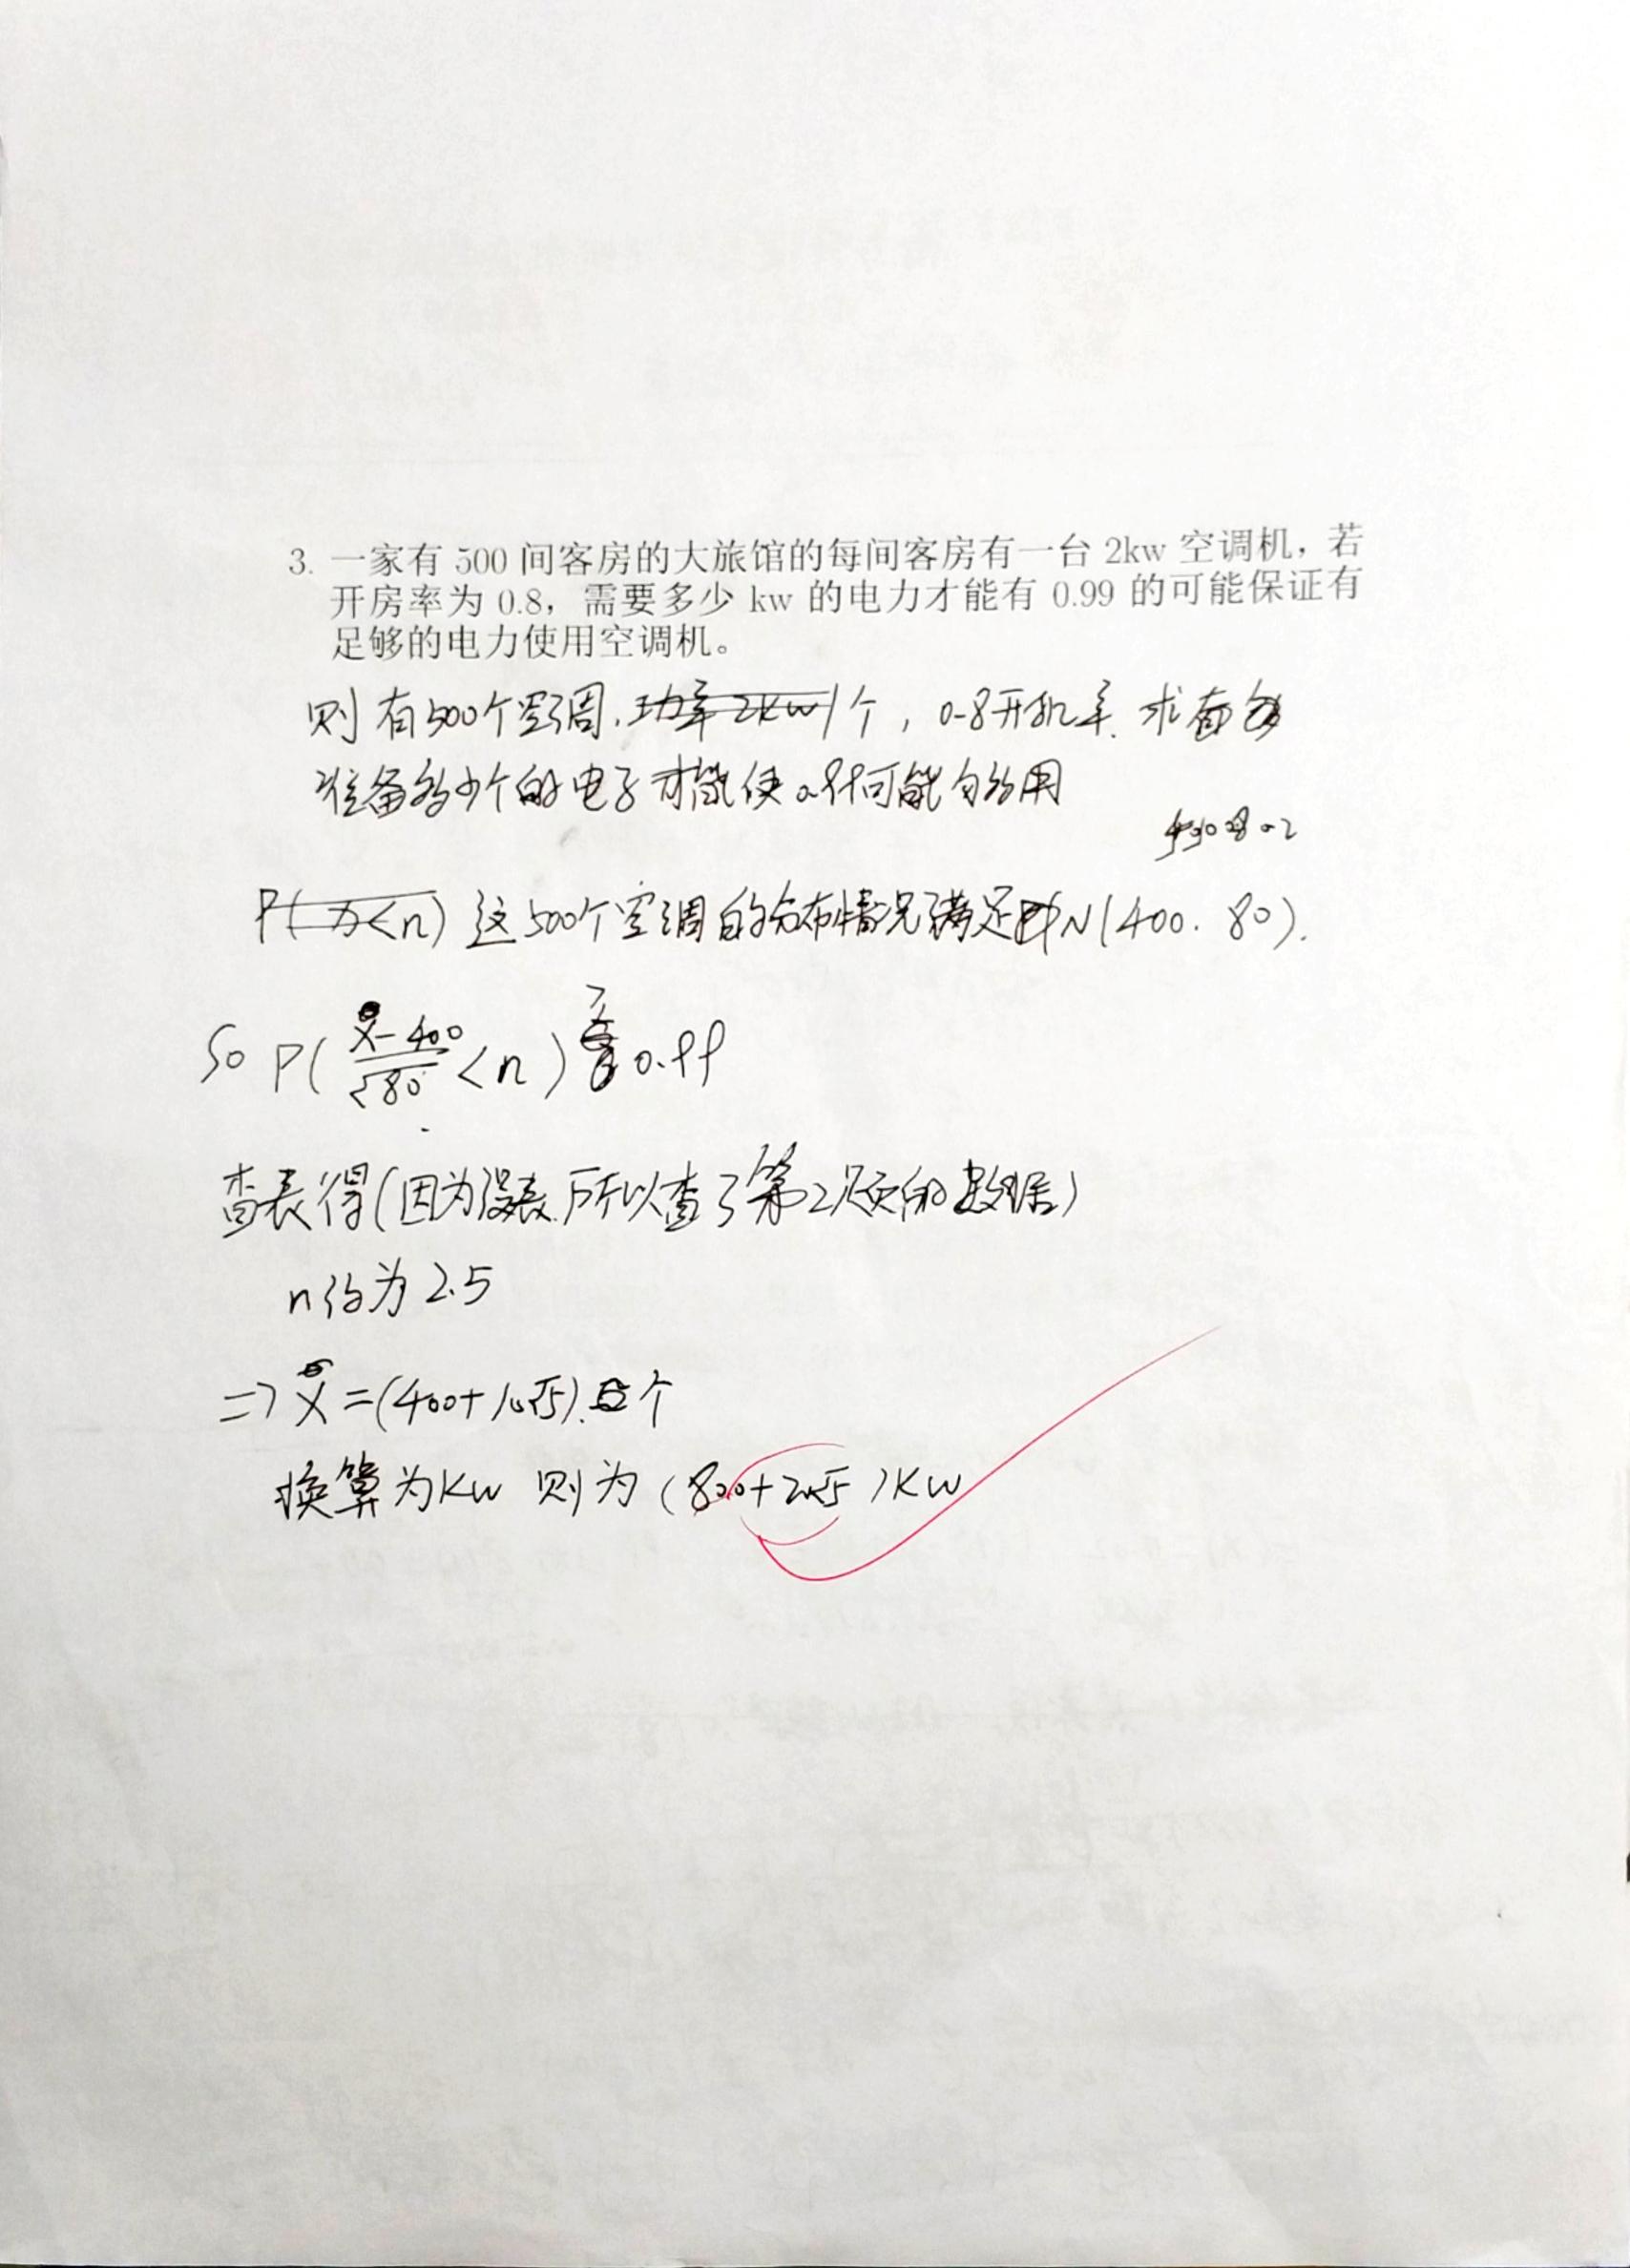 3. 一家有 500 间客房的大旅馆的每间客房有一台 2kw 空调机，若
开房率为 0.8，需要多少 kw 的电力才能有 0.99 的可能保证有
足够的电力使用空调机。
则有500个空调.功率2kw/个，0.8开机率.求
准备多少个的电子才能使0.99可能够用
P(  <n) 这500个空调的分布情况满足 N(400.80).
So P( X-400 / √80 <n) 0.99
查表得(因为没表.所以查了第2题的数据)
n约为2.5
=> X=(400+10√5).个
换算为Kw 则为(800+20√5)KW